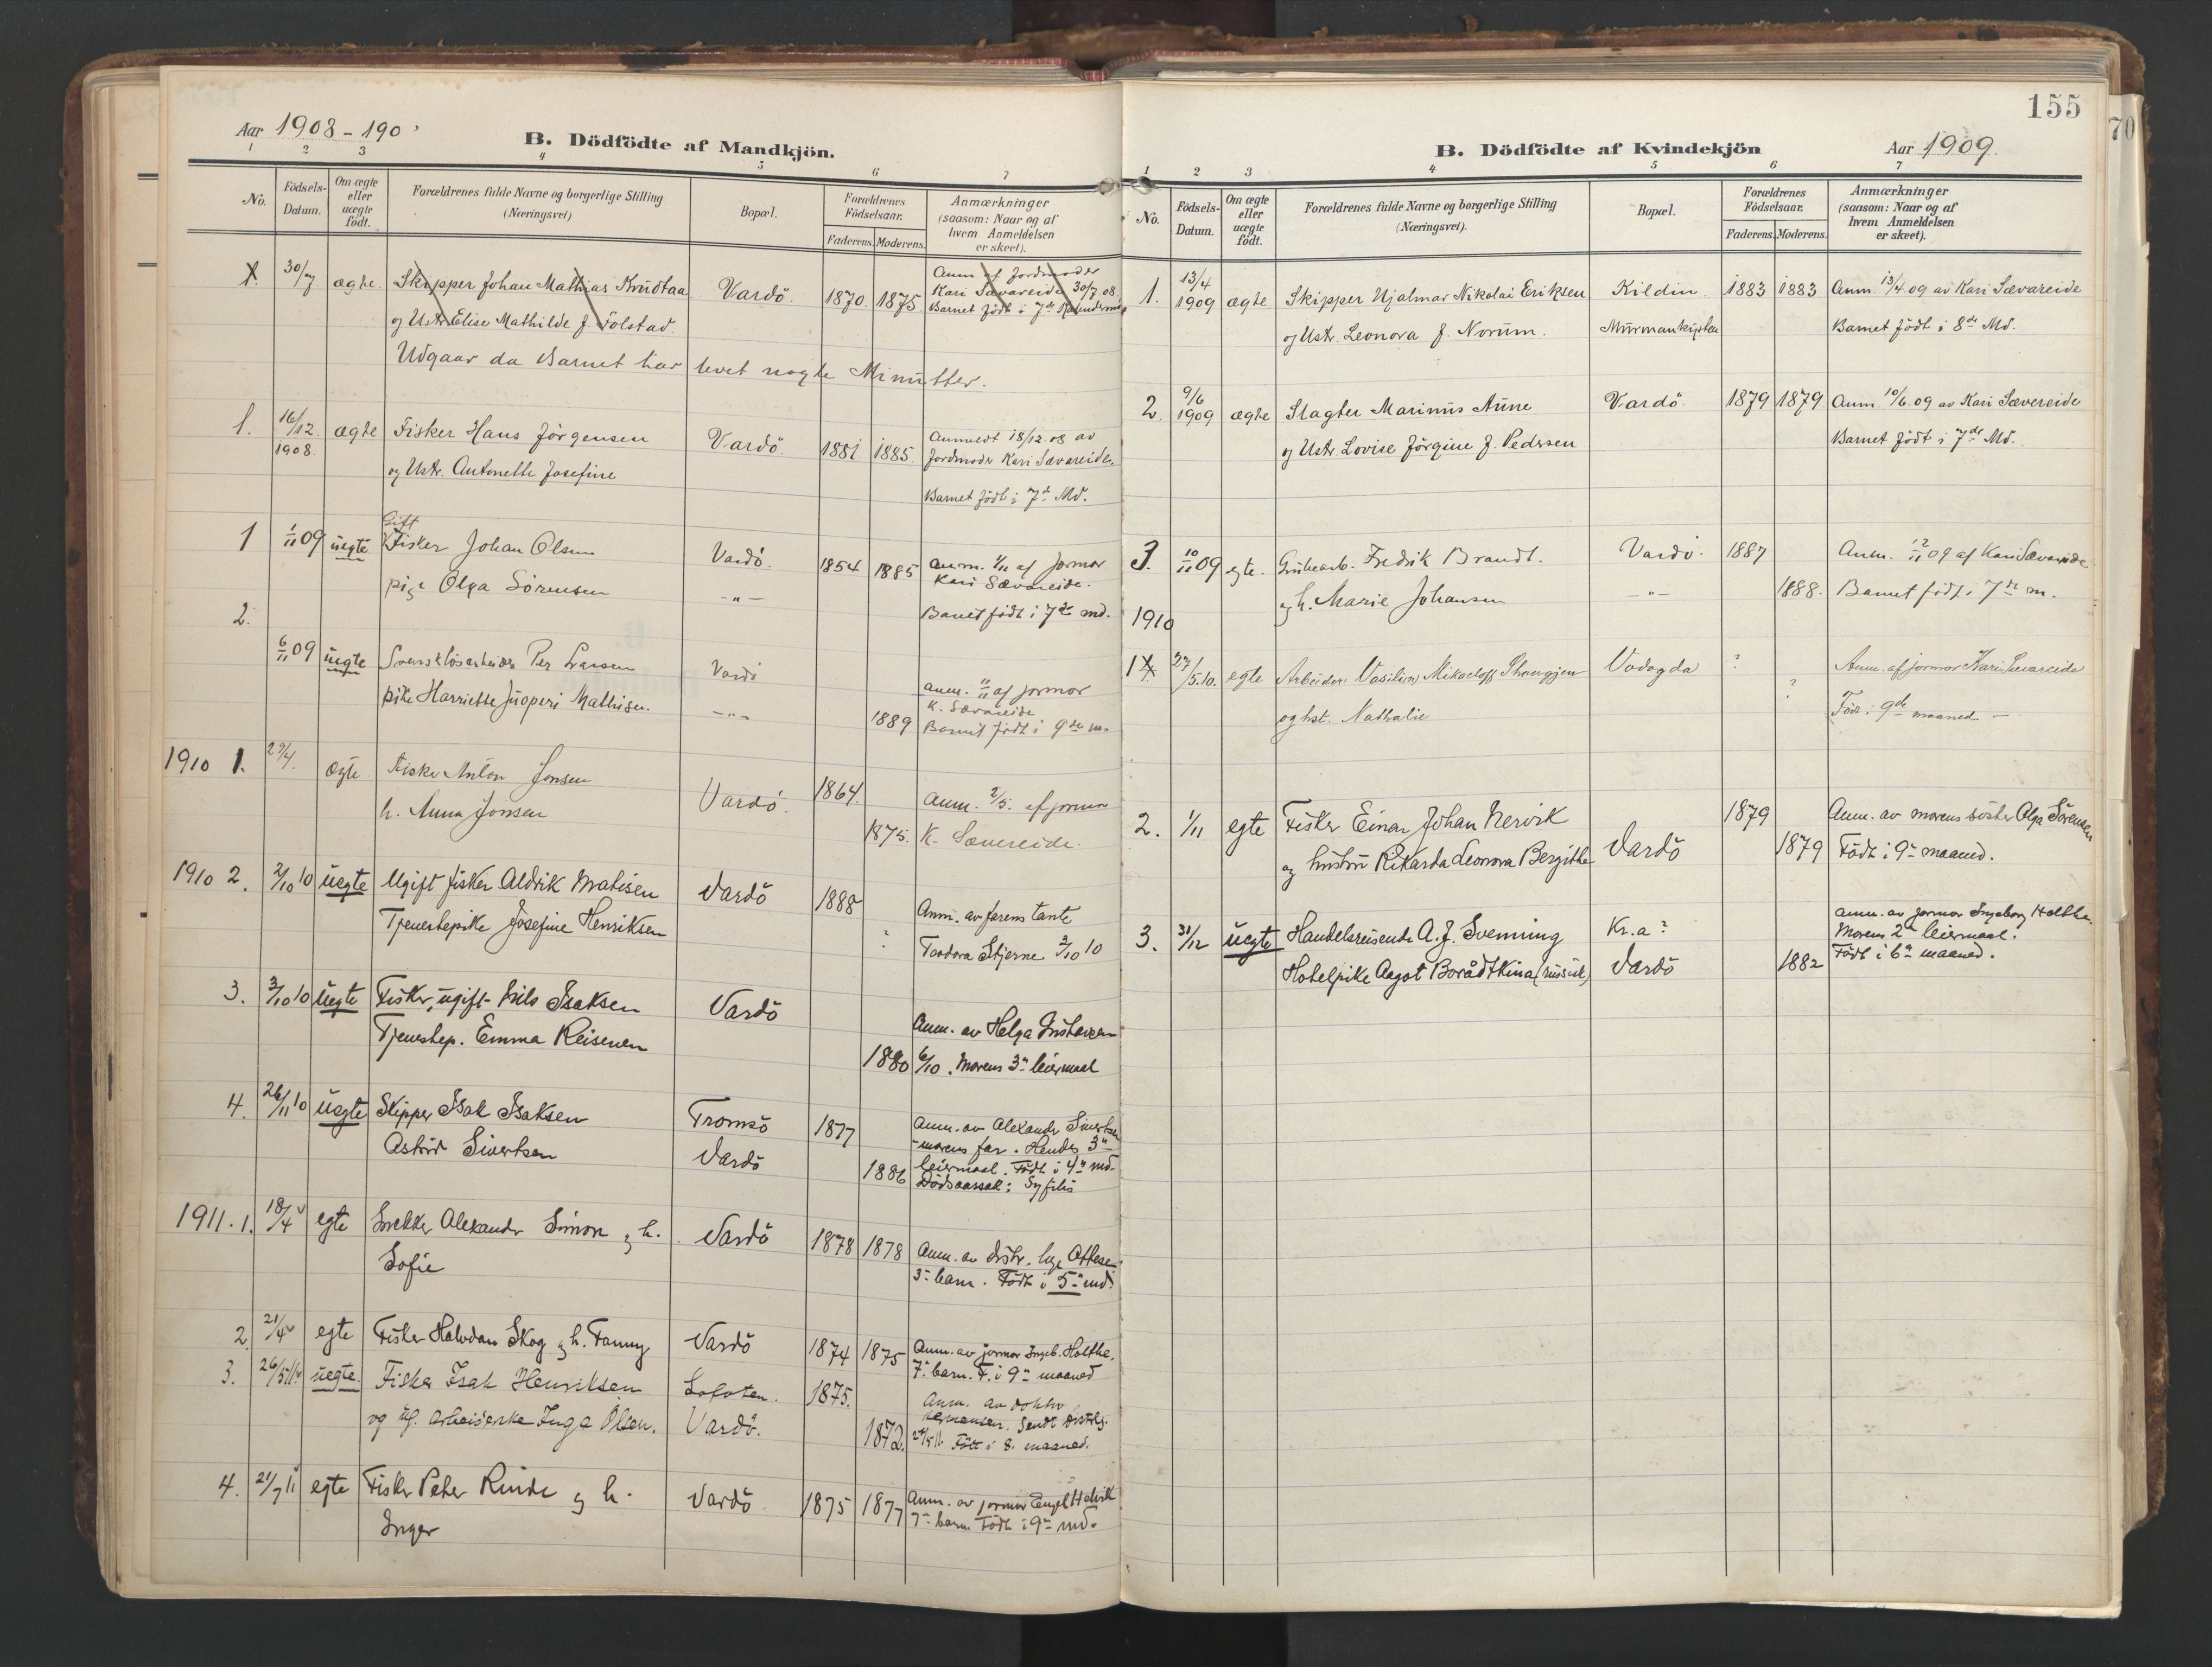 Aar 1908-190
B. Dödfödte af Mandkjön.
1 2 3 4 5 6 7
No.
Födsels-Datum.
Om ægte eller uægte født.
Forældrenes fulde Navne og borgerlige Stilling (Næringsvei)
Bopæl.
Forældrenes Födselsaar.
Faderens. Moderens.
Anmærkninger (saasom: Naar og af hvem Anmeldelsen er skeet).
1. 30/7 ægte Skipper Johan Mathias Knudtaa Vardö. 1870. 1875 Anm af Jordmoder
Kari Sævareide 30/7 08
og Ustr. Elise Mathilde f. Folstad. Barnet födt i 7de
Udgaar da Barnet har levet nogle Minutter.
1. 16/12 1908. ægte Fisker Hans Jörgensen Vardö. 1881 1885. Anmeldt 18/12 08 av
og Ustr. Antonette Josefine Jordmoder Kari Sævareide.
Barnet födt i 7de Md.
1 1/11 09 uegte Gift Fisker Johan Olsen Vardö. 1854 1885 anm. 1/11 af jormor
Kari Sævareide.
pige Olga Sörensen -"-
Barnet födt i 7de md.
2. 6/11 09 uegte Svensk lösarbeider Per Larsen Vardö
anm. 11/11 af jormor
pike Harriette Mathisen. -"- K. Sævareide
1889 Barnet födt i 9de m.
1910 1. 29/4. ægte Fisker Anton Jonsen Vardö. 1864. Anm. 2/5. af jormor
h. Anna Jonsen 1875. K. Sævereide.
1910 2. 2/10 10 uegte Ugift fisker Aldrik Matisen Vardö 1888 Anm. av farens tante
Tjenestepike Josefine Henriksen ? Tordora Stjerne 3/10 10
3. 3/10 10 uegte Fisker, ugift Nils Isaksen Vardö Anm. av Helga Gustavsen
Tjenestep. Emma Reisenen 1880 6/10. Morens 3e leiermaal
4. 26/11 10 uegte Skipper Isak Isaksen Tromsö 1877 Anm. av Alexander Sivertsen
morens far. Hendes 3e
Astrid Sivertsen Vardö 1886 leiermaal. Födt i 4e md.
Dödsaarsak: Syfilis
1911. 1. 18/4 egte Snekker Alexander Simon og h. Vardö 1878 1878 Anm. av distr. læge Ottesen
Sofie 3e barn. Födt i 5e md.
2. 21/4 egte Fisker Halvdan Skog og h. Fanny Vardö 1874 1875 Anm. av jormor Ingeb. Holthe.
7e barn. F. i 9e maaned
3. 26/5 11 uegte. Fisker Isak Henriksen Lofoten. 1875. Anm. av doktor
og ug. arbeiderske Inga Olsen. Vardö. 1872. Sendt distrlg.
24/5 11. Födt i 8. maaned.
4. 21/7 11 egte Fisker Peter Rinde og h. Vardö 1875 1877 Anm. av jormor Engel Helvik
Inger 7e barn. Födt i 9e md.
155
70
B. Dödfödte af Kvindekjön
Aar 1909.
1 2 3 4 5 6 7
No.
Födsels-Datum.
Om ægte eller uægte födt.
Forældrenes fulde Navne og borgerlige Stilling (Næringsvei).
Bopæl.
Forældrenes Födselsaar.
Faderens. Moderens.
Anmærkninger (saasom: Naar og af hvem Anmeldelsen er skeet).
1. 13/4 1909 ægte Skipper Hjalmar Nikolai Eriksen Kildin 1883 1883 Anm. 13/4 09 av Kari Sævareide
og Ustr. Leonora f. Norum. Murmankysten Barnet födt i 8de Md.
2. 9/6 1909 ægte Slagter Marinus Aune Vardö. 1879 1879 Anm. 10/6.09 av Kari Sævereide
og Ustr. Lovise Jörgine f. Pedersen Barnet födt i 7de Md.
3. 10/11 09 egte. Grubearb. Fredrik Brandt. Vardö. 1887 Anm. 12/11 09 af Kari Sævareide
og h. Marie Johansen -"- 1888. Barnet födt i 7de m.
1910
1 27/5.10. egte Arbeider Vasilius Mikaeloff Vadogda ? Anm. af jormor Kari Sævareide
og hst. Nathalie ? Föd i 9de maaned. -
2. 1/11 egte Fisker Einar Johan Nervik Vardö 1879 Anm. av morens söster Olga Sörensen
og hustru Rikarda Leonora Bergithe 1879 Födt i 9e maaned.
3. 31/12 uegte Handelsreisende A. J. Svenning Kr.a? anm. av jormor Ingeborg Holthe.
Morens 2e leiermaal.
Hotelpike Aagot Borådtkina (russisk) Vardö 1882 Födt i 6e maaned.